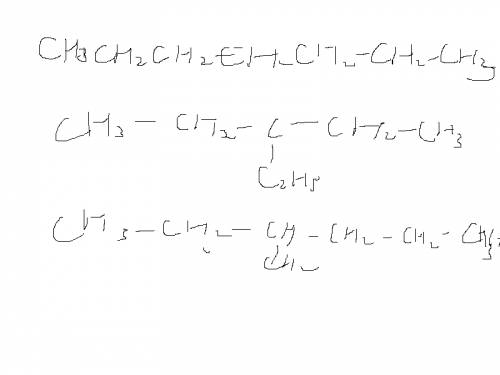 CH3CH2CH2CH-CH2-CH2-CH3
CH3 - CH2 - C - CH2 - CH3
C2H5
CH3 - CH2 - CH - CH2 - CH2 - CH3
CH2